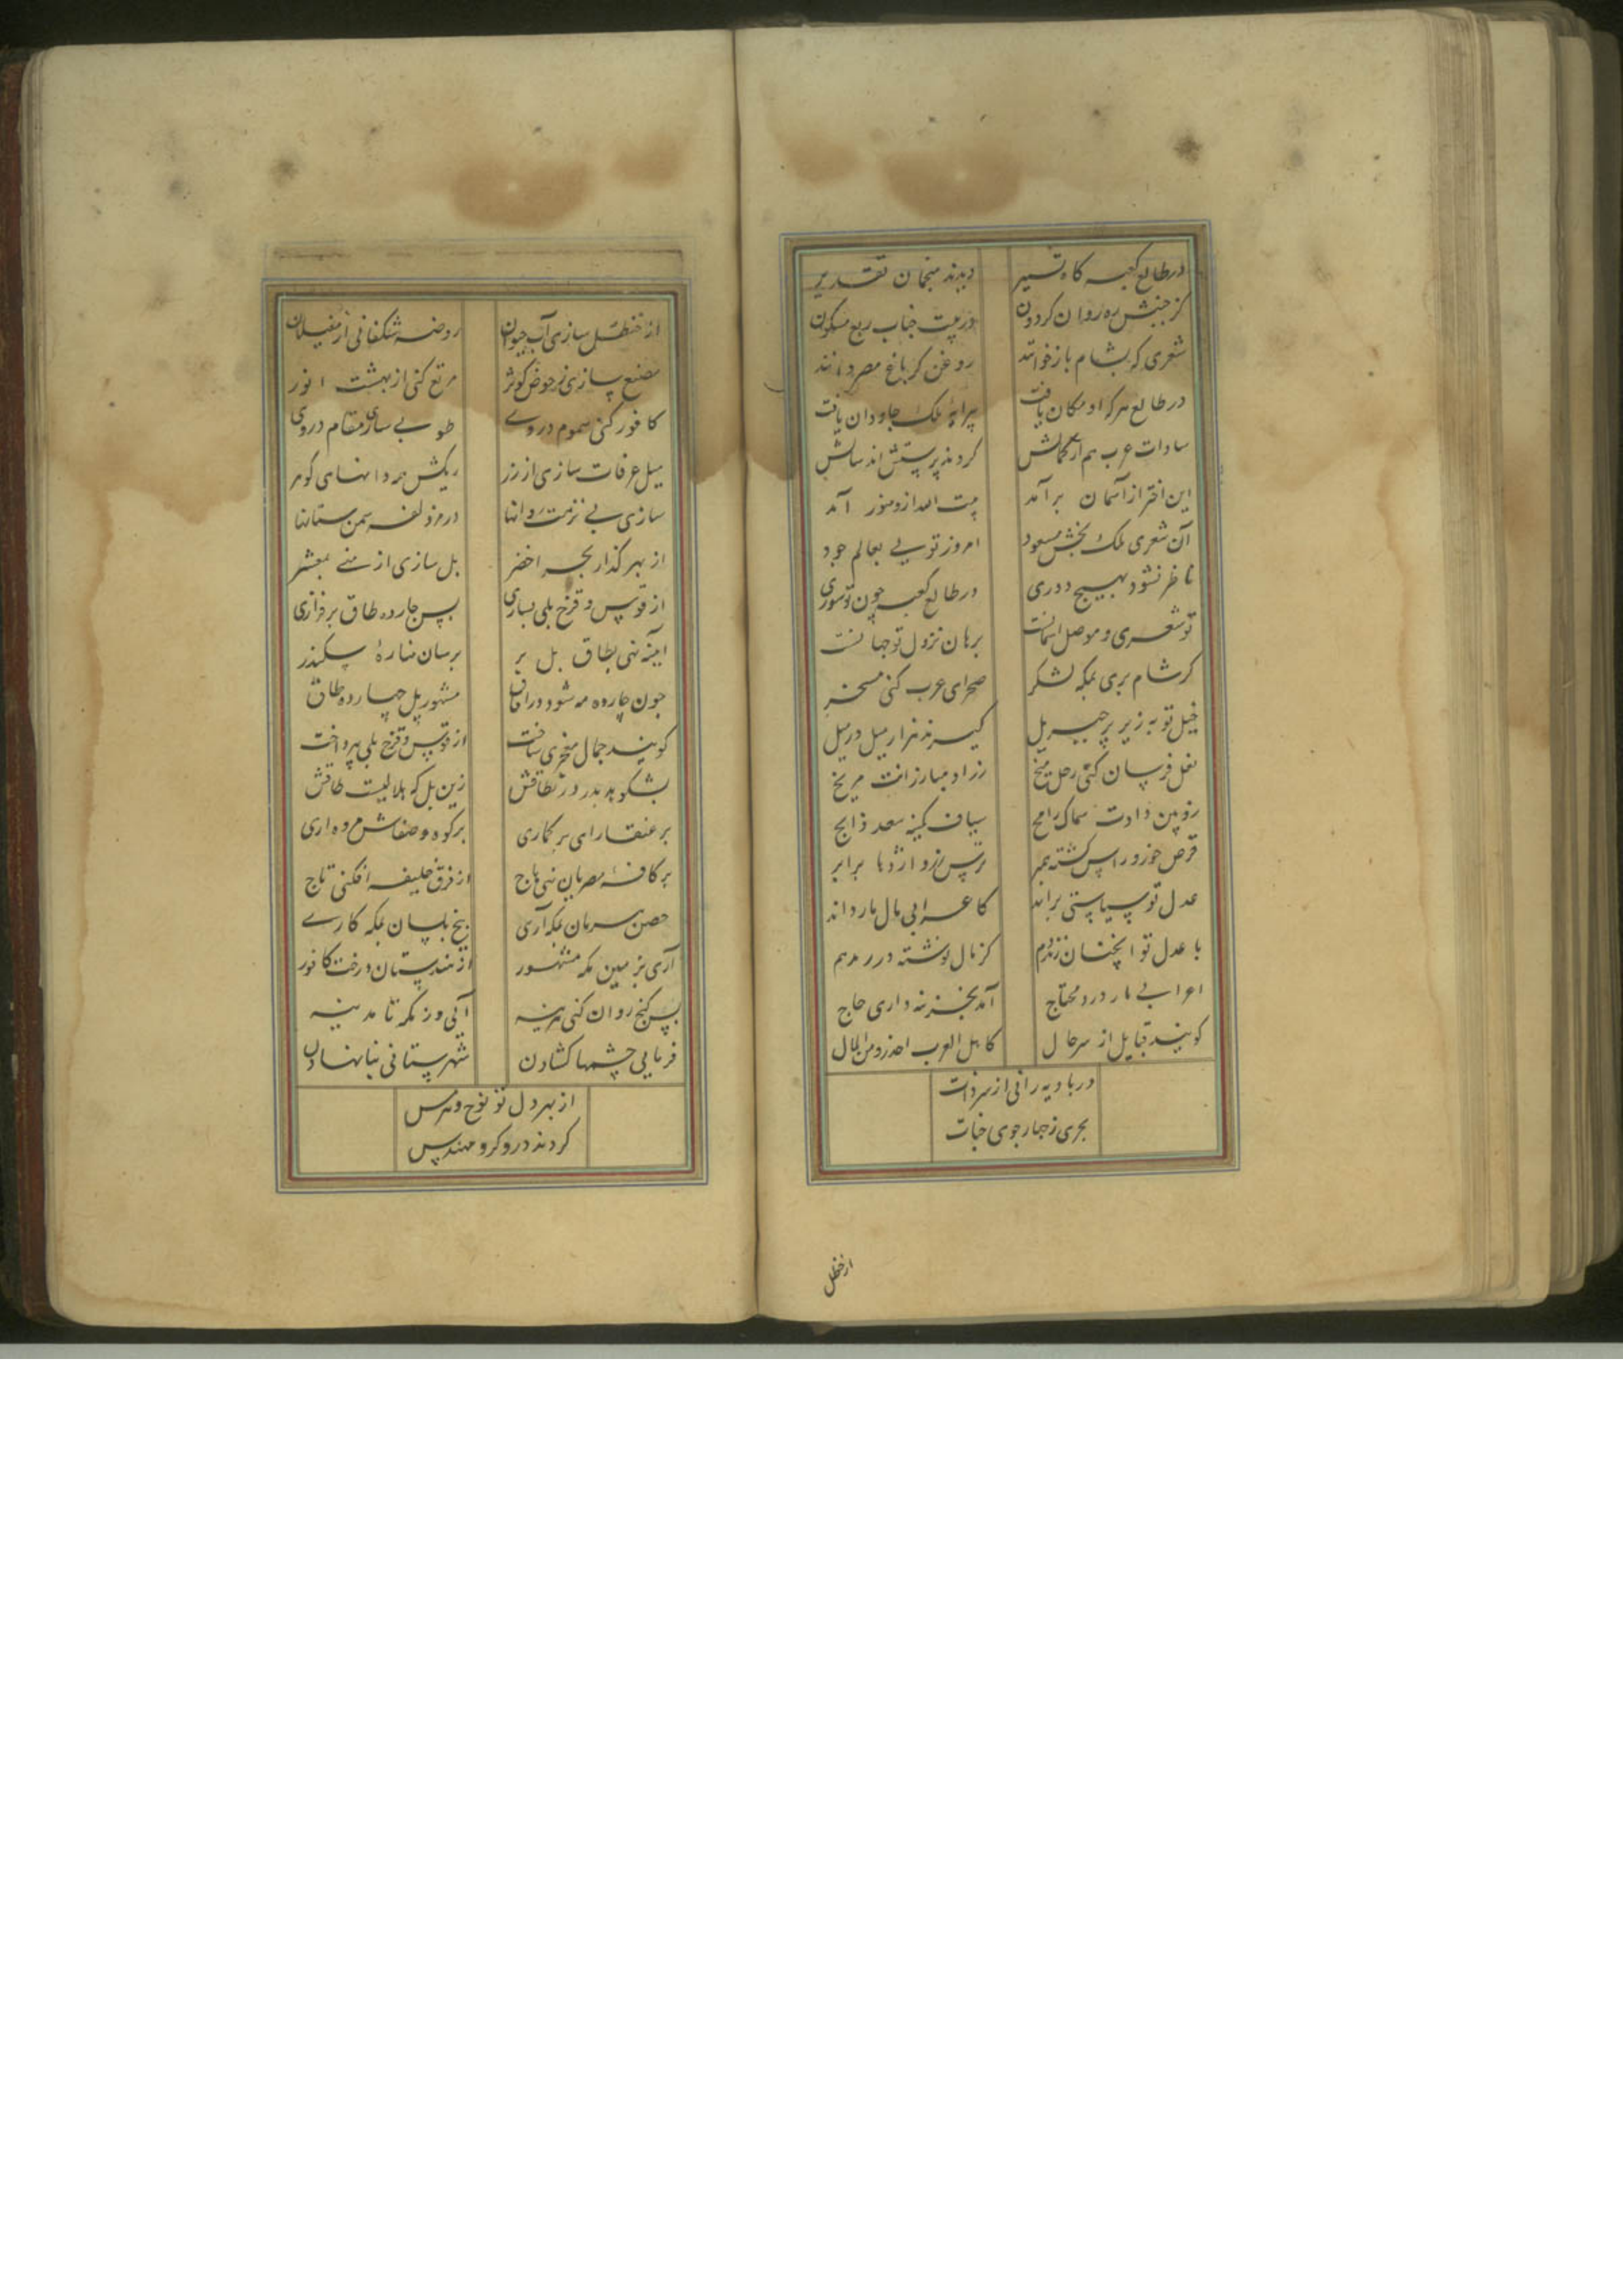 در طالع کعبه کاه تسیر دیدند منجمان تقدیر
کز جنبش ره روان کردون در بیت جناب ربع مسکون
شعری که بشام باز خوانند روغن کر باغ مصر دانند
در طالع هر که او مکان یافت پیرایهٔ ملک جاودان یافت
سادات عرب هم از کمالش کردند پرستش اند سالش
این اختر از آسمان برآمد بیت الله ازو منور آمد
آن شعری ملک بخش مسعود امروز تویی بعالم جود
ناظر نشود بهیچ دوری در طالع کعبه چون تو سوری
تو شعری و موصل آسمانت برهان نزول تو جهانست
کر شام بری بمکه لشکر صحرای عرب کنی مسخر
خیل تو به زیر پر جبریل کیرند هزار میل در میل
نعل فرسان کنی زحل میخ زراد مبارزانت مریخ
روبین دادت سماک رامح سیاف کمینه سعد ذابح
قرص خور و راس کشته بمبر ترس زر و اژدها برابر
عدل تو سیاستی براند کاعرابی مال مار داند
با عدل تو آنچنان نژدم کز مال نوشته در رمدهم
اعرابی مار درد محتاج آمد بخزینه داری حاج
کویند قبایل از سر حال کاهل العرب احذروا من المال
در بادیه رانی از سر ذات
بحری ز چهار جوی جنات
از حنظل
از حنظل سازی آب حیوان روضه شکفانی از مغیلان
مصنع سازی ز حوض کوثر مرتع کنی از بهشت انور
کافور کنی سموم در وی طوبی سازی مقام در وی
میل عرفات سازی از زر ریکش همه دانهای کوهر
سازی بی نزهت روانها در مزدلفه سمن ستانها
از بهر کذار بحر اخضر پل سازی از منی بمشعر
از قوس و قزح پلی بسازی پس چارده طاق بر فرازی
آینه نهی بطاق پل بر برسان منارهٔ سکندر
چون چارده مه شود در آفاق مشهور پل چهارده طاق
کویند جمال مفخری ساخت از قوس و قزح پلی بپرداخت
بشکوهد بدر در نطاقش زین پل که هلالیست طاقش
بر عنقا رای بر کماری بر کوه صفاش مروه داری
بر کافهٔ مصریان نهی باج از فرق خلیفه افکنی تاج
حصن هرمان بمکه آری بیخ بلسان بمکه کاری
آری بزمین مکه مشهور از هندستان درخت کافور
پس کنج روان کنی هزینه آنی وز مکه تا مدینه
فرمایی چشمها کشادن شهرستانی بنا نهادن
از بهر دل تو نوح و هرمس
کردند دروکر و مهندس